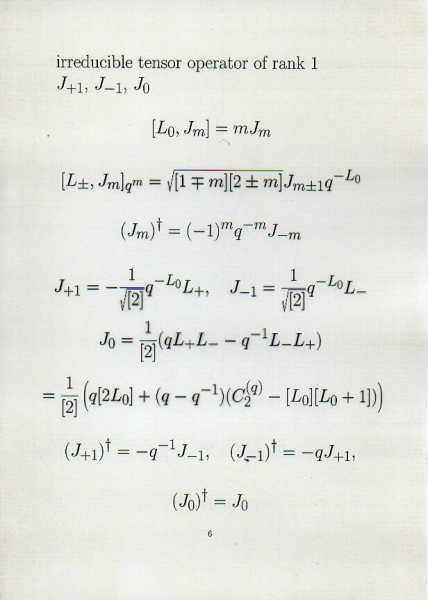 irreducible tensor operator of rank 1
J₊₁, J₋₁, J₀
[L₀, Jₘ] = mJₘ
[L±, Jₘ]_{q^m} = √([1 ∓ m][2 ± m]) J_{m±1} q^{−L₀}
(Jₘ)† = (−1)^m q^{−m} J₋ₘ
J₊₁ = −\frac{1}{√[2]} q^{−L₀} L₊, J₋₁ = \frac{1}{√[2]} q^{−L₀} L₋
J₀ = \frac{1}{[2]} (qL₊L₋ − q^{−1}L₋L₊)
= \frac{1}{[2]} (q[2L₀] + (q − q^{−1})(C₂^{(q)} − [L₀][L₀ + 1]))
(J₊₁)† = −q^{−1}J₋₁, (J₋₁)† = −qJ₊₁,
(J₀)† = J₀
6